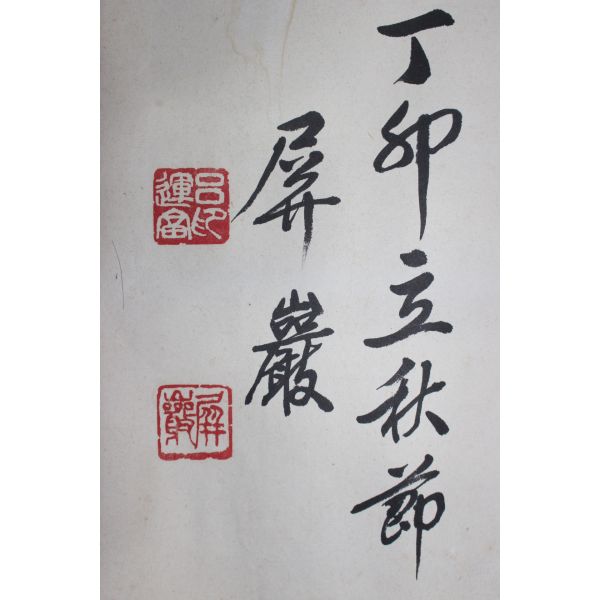 丁卯立秋節
屏巖
呂印運富
屏巖